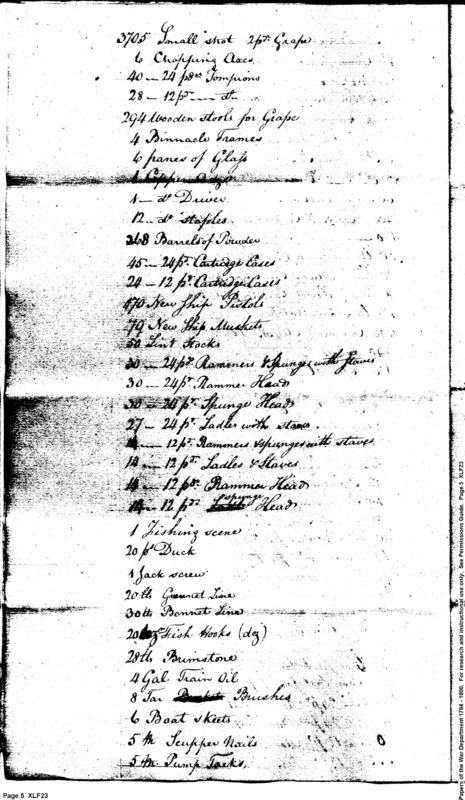 3705 Small shot 2pr. Grape
6 Chopping Axes
40 — 24 pdrs Tompions
28 — 12 pr. — do.
294 Wooden stools for Grape
4 Binnacle Frames
6 panes of Glass
1 Copper
1 — do Driver
12 — do Staples
268 Barrels of Powder
45 — 24 pr. Cartridge Cases
24 — 12 pr. Cartridge Cases
170 New Ship Pistols
79 New Ship Muskets
50 Lint Stocks
30 — 24 pr. Rammers & Spunges with staves
30 — 24 pr. Rammer Heads
30 — 24 pr. Spunge Heads
27 — 24 pr. Ladles with staves
14 — 12 pr. Rammers & spunges with staves
14 — 12 pr. Ladles & Staves
14 — 12 pr. Rammer Heads
14 — 12 pr. spunge Heads
1 Fishing scene
20 ps Duck
1 Jack screw
20 lb Line
30 lb Bonnet Line
20 Fish Hooks (doz)
28 lb Brimstone
4 Gal Train Oil
8 Tar Brushes
6 Boat skeets
5 M Scupper Nails
5 M. Pump Tacks
Page 5 XLF23
Papers of the War Department 1784 - 1800. For research and instructional use only. See Permissions Guide. Page 5 XLF23